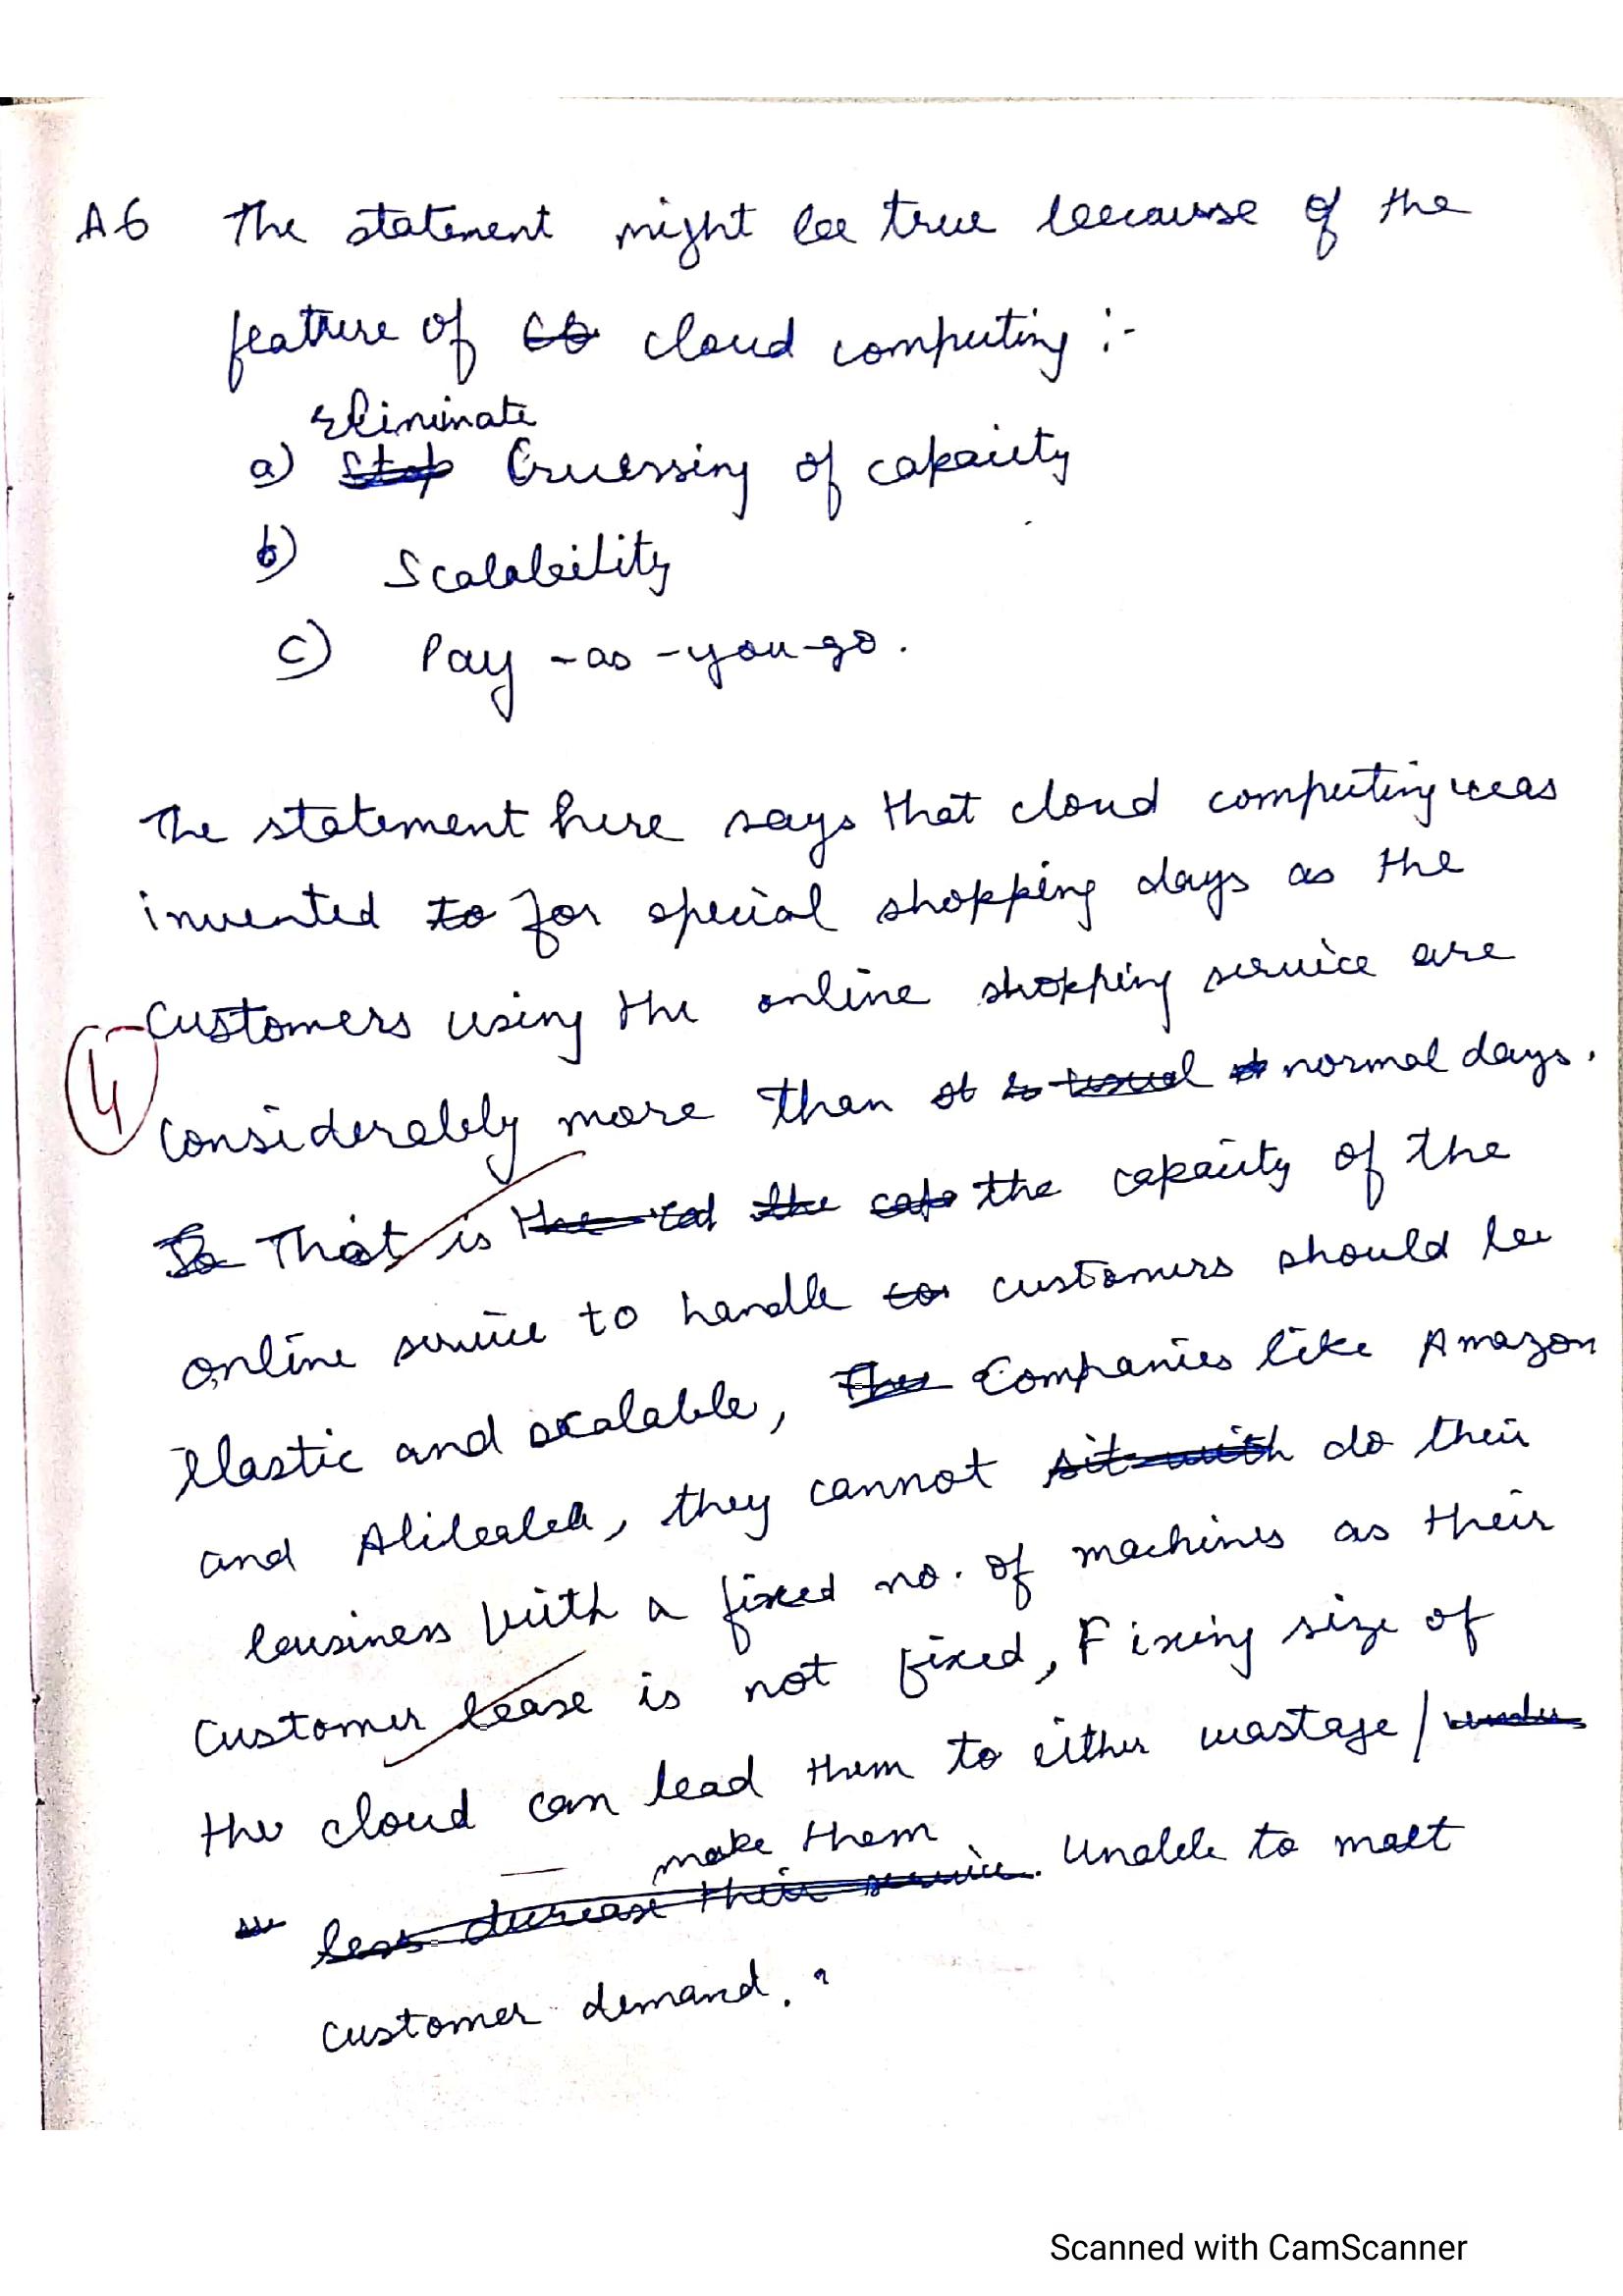 A6 The statement might be true because of the
feature of cloud computing :-
Eliminate
a) Stop Guessing of capacity
b) Scalability
c) Pay-as-you-go.
The statement here says that cloud computing was
invented to for special shopping days as the
Customers using the online shopping service are
4
considerably more than usual normal days.
So That is the the cap the capacity of the
online service to handle customers should be
elastic and scalable, Companies like Amazon
and Alibaba, they cannot sit with do their
business with a fixed no. of machines as their
Customer base is not fixed, Fixing size of
the cloud can lead them to either wastage/
make them
less decrease their service. Unable to meet
customer demand.
Scanned with CamScanner